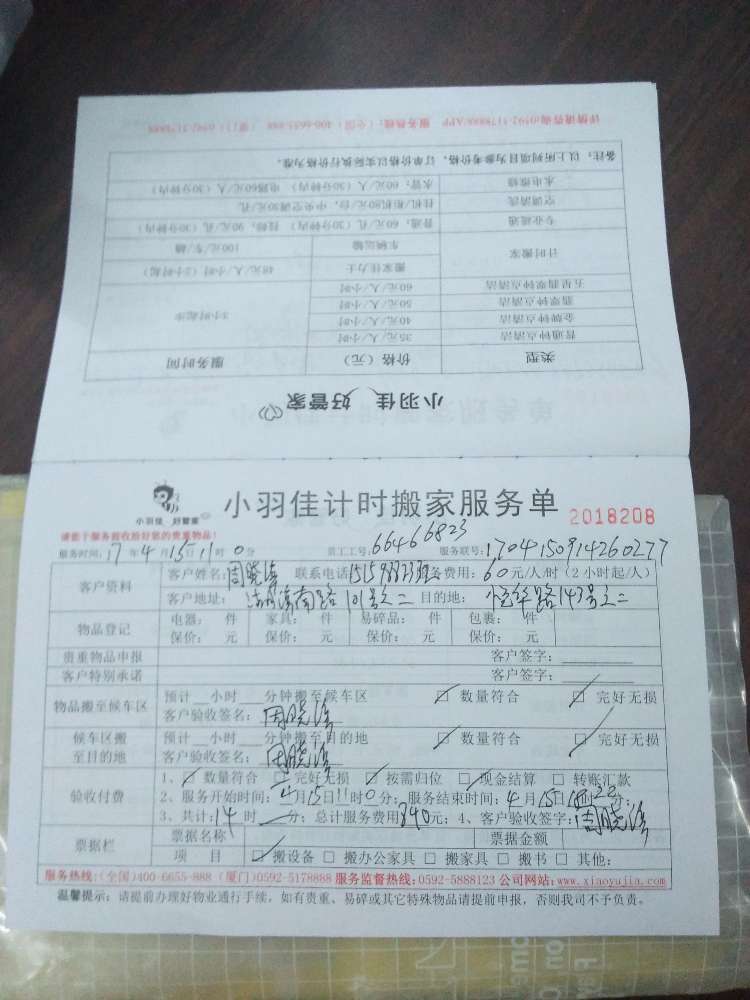 详情请咨询:0592-5178888/APP 服务热线：(全国) 400-6655-888 (厦门) 0592-5178888
小羽佳 好管家
类型 价格（元） 服务时间
普通钟点清洁 35元/人/小时 3小时起步
金牌钟点清洁 40元/人/小时
翡翠钟点清洁 50元/人/小时
五星翡翠钟点清洁 60元/人/小时
计时搬家 搬家佳力士 48元/人/小时（2小时起）
车辆运输 100元/车/趟
专业疏通 普通：60元/孔（30分钟内） 挂蹲：90元/孔（30分钟内）
空调清洗 挂机/柜机80元/台，中央空调30元/孔
水电维修 水管：60元/人（30分钟内） 电路60元/人（30分钟内）
备注：以上所列项目为参考价格，订单价格以实际执行价格为准。
小羽佳 好管家
小羽佳计时搬家服务单 2018208
请您于服务前收拾好您的贵重物品！
服务时间：17年4月15日11时0分 员工工号：66466823 服务联号：1704150914260277
客户资料 客户姓名：周晓涛 联系电话 服务费用：60元/人/时（2小时起/人）
客户地址： 南路101号之二 目的地： 华路143号之二
物品登记 电器： 件 家具： 件 易碎品： 件 包裹： 件
保价： 元 保价： 元 保价： 元 保价： 元
贵重物品申报 客户签字：
客户特别承诺 客户签字：
物品搬至候车区 预计__小时__分钟搬至候车区 数量符合 完好无损
客户验收签名：周晓涛
候车区搬至目的地 预计__小时__分钟搬至目的地 数量符合 完好无损
客户验收签名：周晓涛
验收付费 1、数量符合 完好无损 按需归位 现金结算 转账汇款
2、服务开始时间：4月15日11时0分；服务结束时间：4月15日
3、共计：14时__分；总计服务费用840元；4、客户验收签字：周晓涛
票据栏 票据名称 票据金额
项 目 搬设备 搬办公家具 搬家具 搬书 其他：
服务热线：(全国)400-6655-888 (厦门)0592-5178888 服务监督热线：0592-5888123 公司网站：www.xiaoyujia.com
温馨提示：请提前办理好物业通行手续，如有贵重、易碎或其它特殊物品请提前申报，否则我司不予负责。